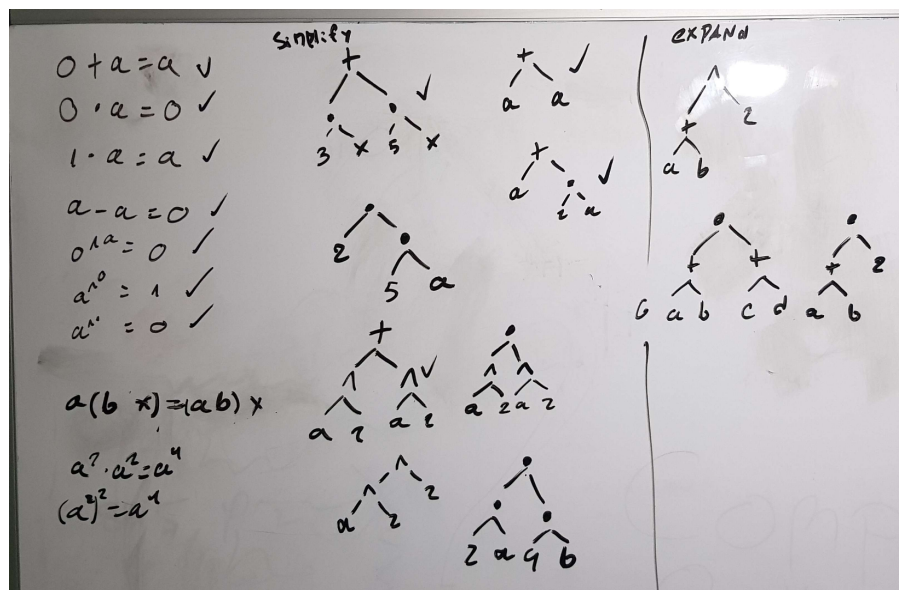 0 + a = a ✓
0 · a = 0 ✓
1 · a = a ✓
a - a = 0 ✓
0^a = 0 ✓
a^0 = 1 ✓
= 0 ✓
a(b x) = (ab) x
a² · a² = a⁴
(a²)² = a⁴
Simplify
+
· · ✓
3 x 5 x
+ ✓
a a
+
a · ✓
a
·
2 ·
5 a
+
^ ^ ✓
a 2 a 2
·
^ ^
a 2 a 2
^
^ 2
a 2
·
· ·
2 a 4 b
EXPAND
^
+ 2
a b
·
+ +
a b c d
·
+ 2
a b